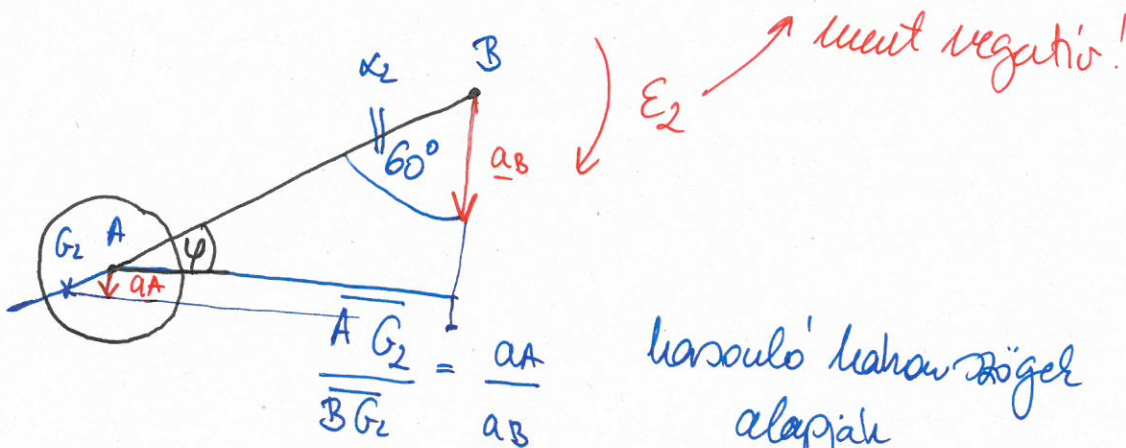 mert negatív!
B
α₂
ε₂
60°
a_B
G₂ A φ
a_A
AG₂ / BG₂ = a_A / a_B
hasonló háromszögek
alapján